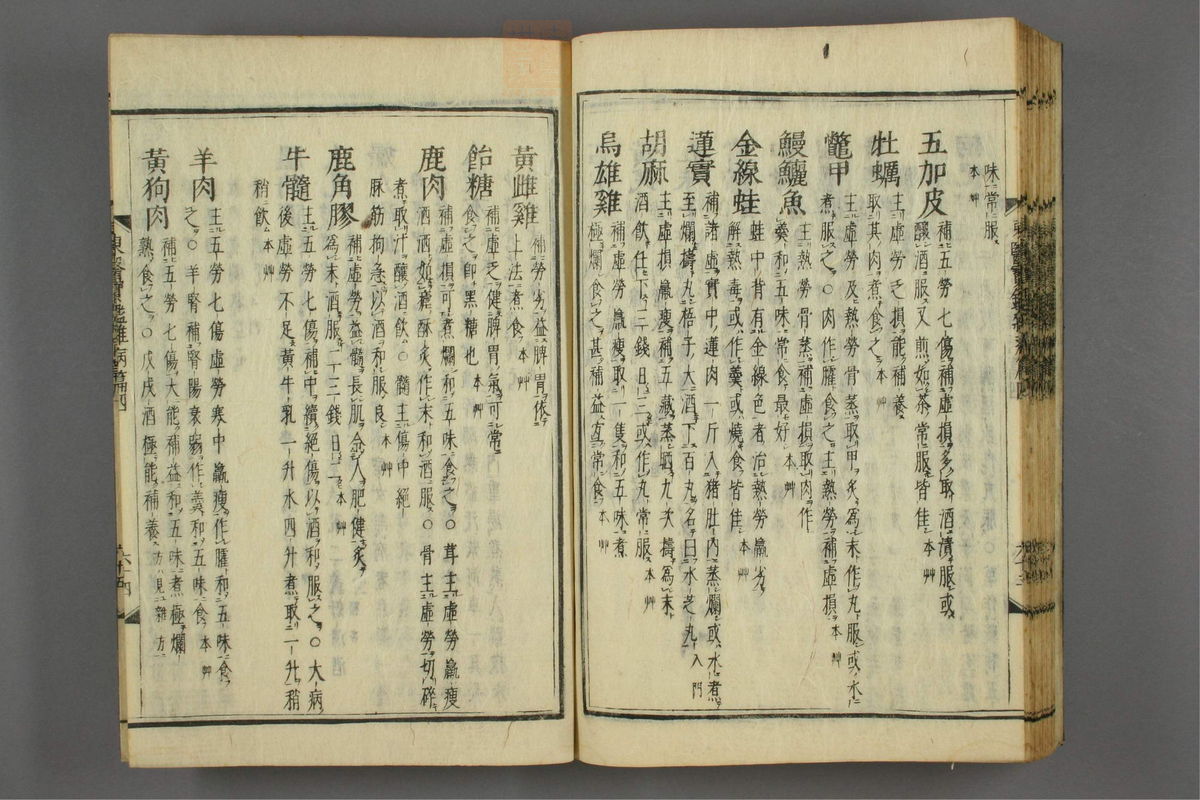 味常服
本艸
五加皮 補五勞七傷補虛損多取酒漬服或
釀酒服又煎如茶常服皆佳 本艸
牡蠣 主虛勞乏損能補養
取其肉煮食之 本艸
鼈甲 主虛勞及熱勞骨蒸取甲炙爲末作丸服或水
煮服之〇肉作臛食之主熱勞補虛損 本艸
鰻鱺魚 主熱勞骨蒸補虛損取肉作
羹和五味常食最好 本艸
金線蛙 蛙中背有金線色者治熱勞羸劣
解熱毒或作羹或燒食皆佳 本艸
蓮實 補諸虛實中蓮肉一斤入猪肚內蒸爛或水煮
至爛擣丸梧子大酒下百丸名曰水芝丸 入門
胡麻 主虛損羸瘦補五藏蒸晒九次擣爲末
酒飮任下三錢日三或作丸常服 本艸
烏雄雞 補虛勞羸瘦取一隻和五味煮
極爛食之甚補益方常食 本艸
黃雌雞 補勞劣益脾胃依
上法煮食 本艸
飴糖 補虛乏健脾胃氣可常
食之卽黑糖也 本艸
鹿肉 補虛損可煮爛和五味食之〇茸主虛勞羸瘦
酒洒如糵酥炙作末和酒服〇骨主虛勞切碎
煮取汁釀酒飮〇髓主傷中絕
脉筋拘急以酒和服良 本艸
鹿角膠 補虛勞益髓長肌令人肥健炙
爲末酒服二三錢日二 本艸
牛髓 主五勞七傷補中續絕傷以酒和服之〇大病
後虛勞不足黃牛乳一升水四升煮取一升稍
稍飮 本艸
羊肉 主五勞七傷虛勞寒中羸瘦作臛和五味食
之〇羊腎補腎陽衰弱作羹和五味食 本艸
黃狗肉 補五勞七傷大能補益和五味煮極爛
熱食之〇戊戌酒極能補養 方見雜方
東醫寶鑑雜病篇四
六十四